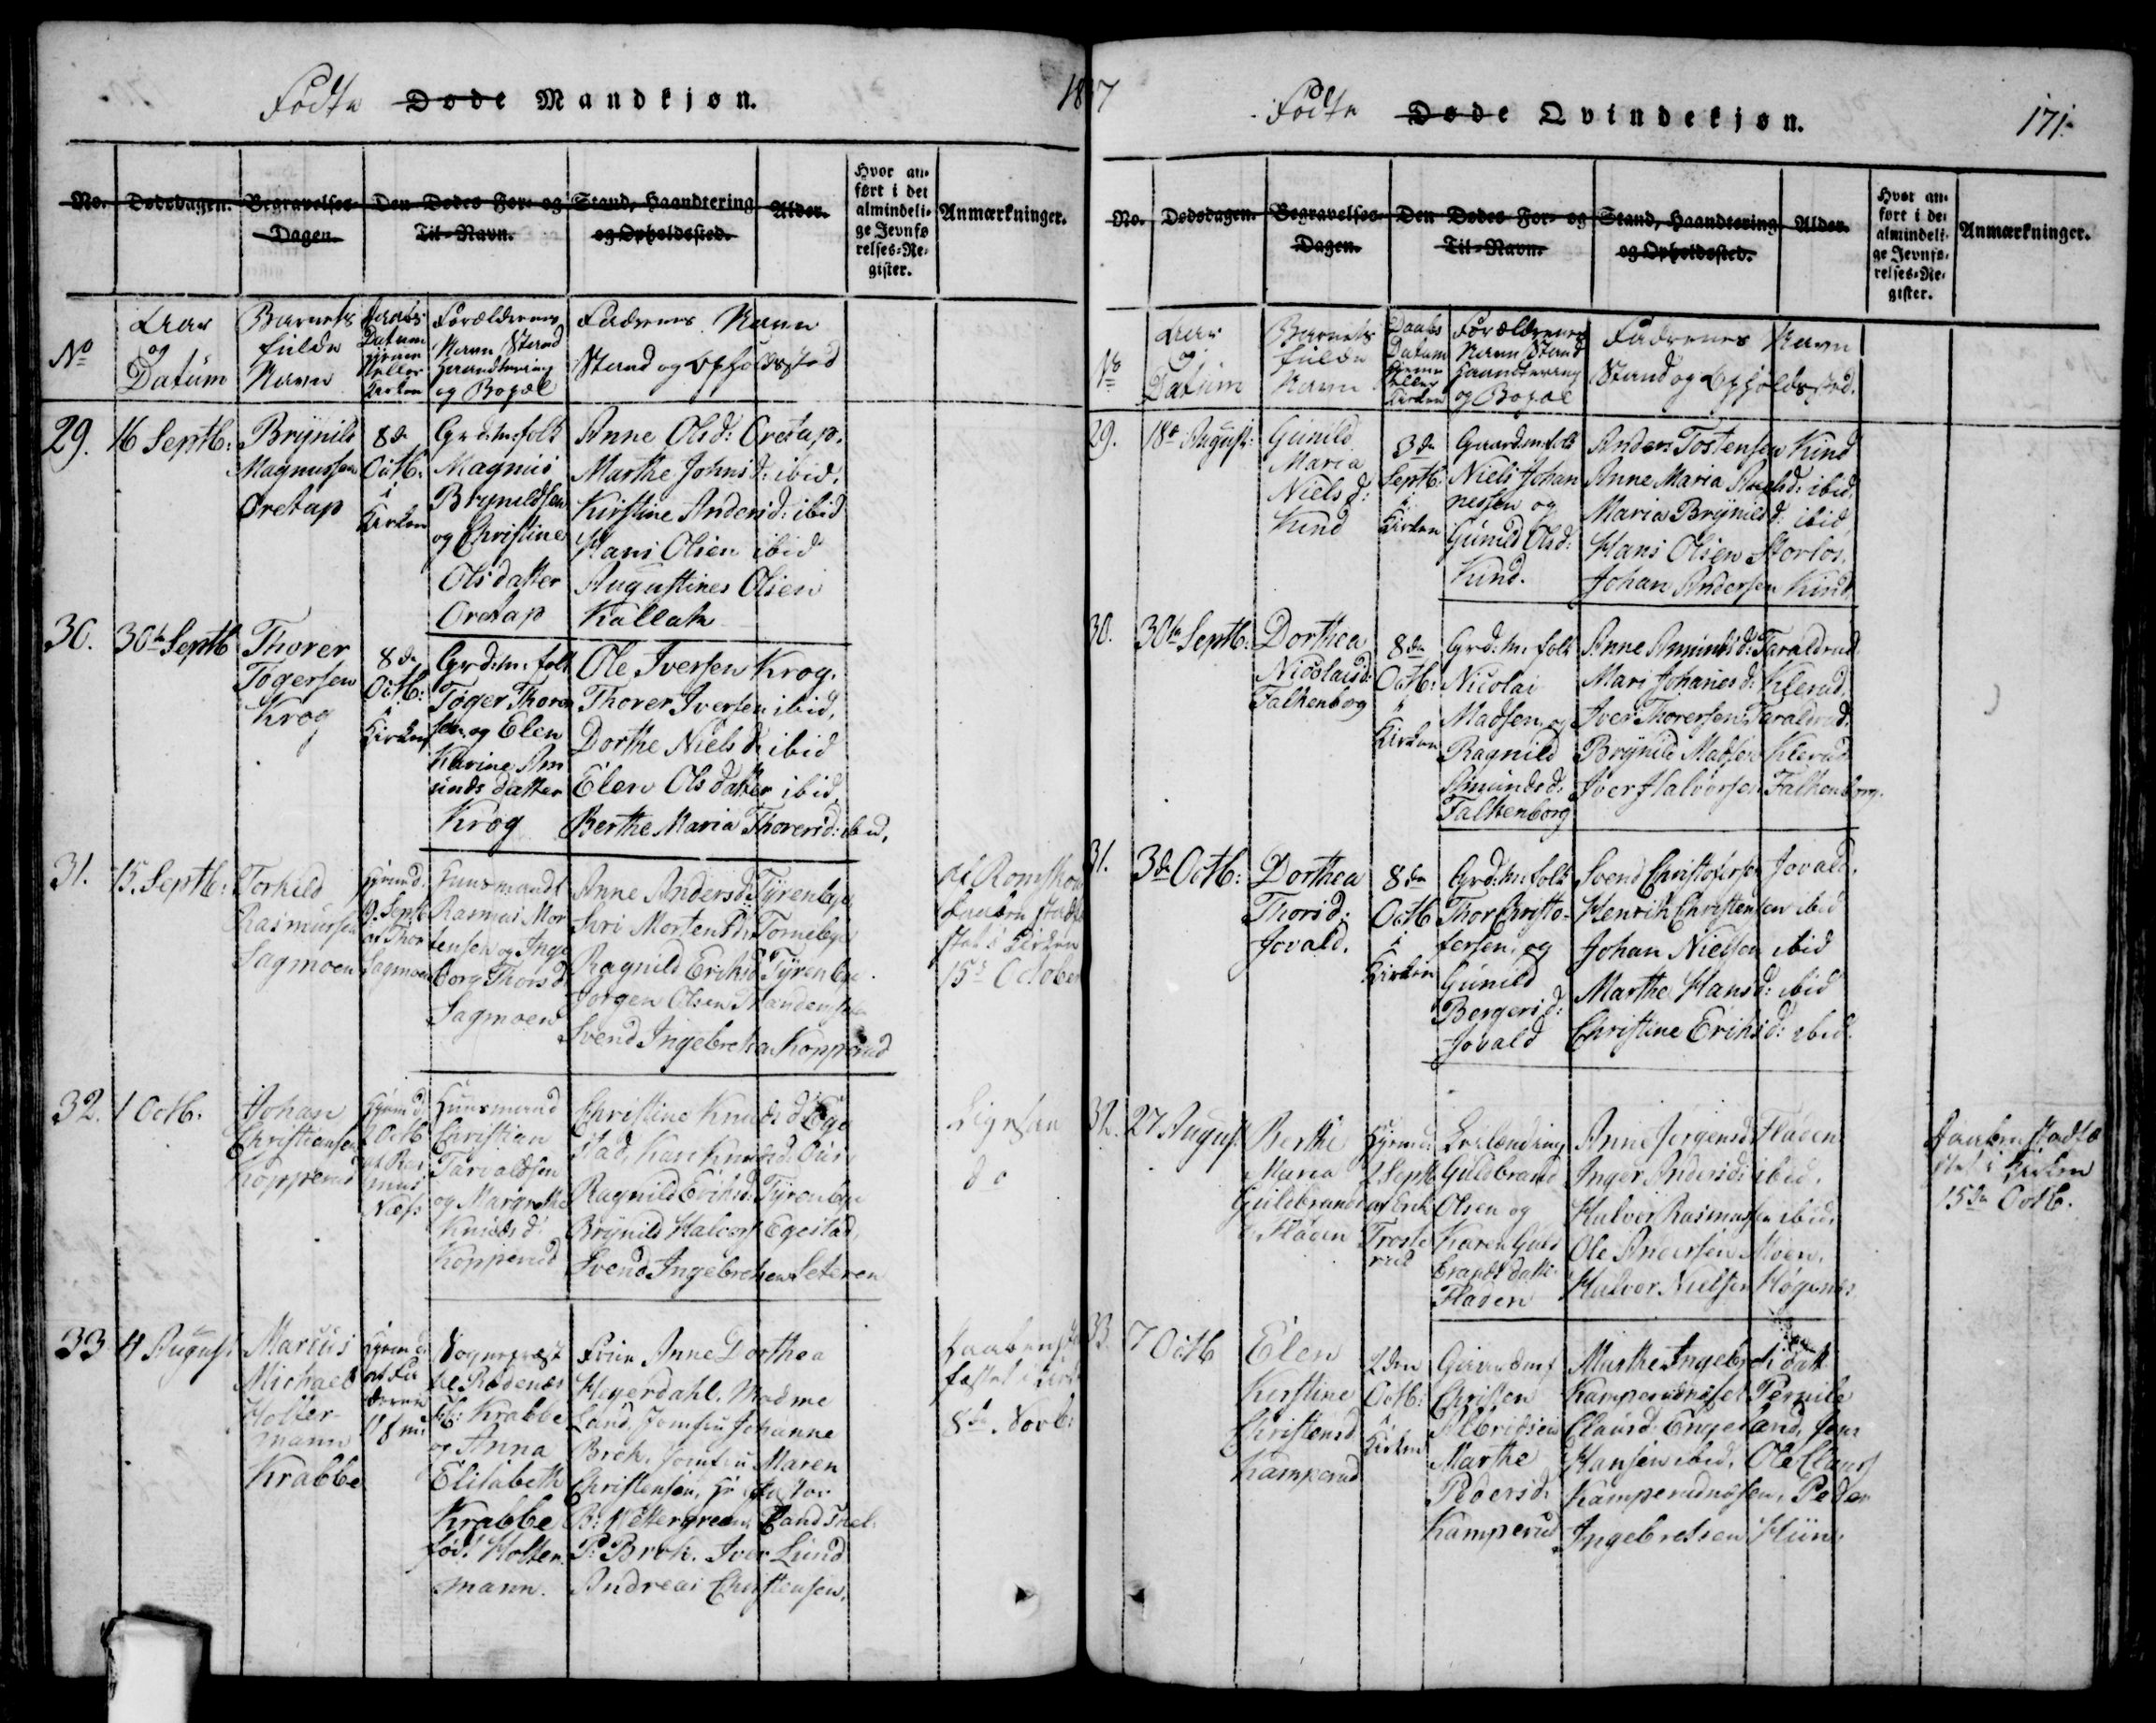 Fødte Døde Mandkjøn.
18
No.
Dødsdagen.
Begravelses-
Dagen.
Den Dødes For- og
Til-Navn.
Stand, Haandtering
og Opholdssted.
Alder.
Hvor an-
ført i det
almindeli-
ge Jevnfø
relses-Re-
gister.
Anmærkninger.
No
Aar
og
Datum
Barnets
fulde
Navn
Daabs
Datum
hjemme
eller
Kirken
Forældrenes
Navn Stand
Haandtering
og Bopæl
Fadrenes Navn
Stand og Opholdssted
29.
16 Septb:
Brynild
Magnussen
Orestap
8de
Octb:
i
Kirken
Grd:m:folk
Magnus
Brynildsen
og Christine
Olsdatter
Orestap
Anne Olsd: Orestap.
Marthe Johnsd: ibid.
Kirstine Andersd: ibid
Hans Olsen ibid
Augustines Olsen
Kallak
30.
30te Septb
Thorer
Tøgersen
Krog
8de
Octb:
i
Kirken
Grd:m: folk
Tøger Thorer
sen og Elen
Karine Am
unds datter
Krog
Ole Iversen Krog.
Thorer Iversen ibid,
Dorthe Nielsd: ibid
Elen Olsdatter ibid
Berthe Maria Thorersd: ibid.
31.
15. Septb:
Torkild
Rasmussen
Sagmoen
Hjemd.
19. Septb
af Thor
Sagmoen
Huusmand
Rasmus Mor
tensen og Inge
borg Thorsd
Sagmoen
Anne Andersd: Tyrenbye
Siri Mortensd: Tomelbye
Ragnild Eriksd Tyrenbye
Jørgen Olsen
Svend Ingebretsen Kopperud
af Romskou
Daaben stadfæ
stet i Kirken
15de October
32.
1 Octb.
Johan
Christiansen
Kopperud
Hjemd:
2 Octb
af Ras
mus
Niels
Huusmand
Christian
Tarvaldsen
og Margrethe
Knudsd:
Kopperud
Christine Knudsd Ege
stad, Kari Knudsd:
Ragnild Eriksd: Tyrenbye
Brynild Halvors Egestad,
Svend Ingebretsen Seteren
Ligesaa
do
33
4 August
Marcus
Michael
Holter-
mann
Krabbe
Hjemd:
af Fa
deren
Sognepræst
til Rødenæs
Krabbe
og Anna
Elisabeth
Krabbe
fød: Holter
mann.
Frue Anne Dorthea
Heyerdahl. Madme
Land. Jomfru Johanne
Brok. Jomfru Maren
Christensen, Hr Pastor
B: Wettergreen,
P: Brok. Iver Lund
Andreas Christensen.
Daaben stad
fæstet i Kirk
8de Novb:
17
Fødte Døde Qvindekjøn.
171.
No.
Dødsdagen.
Begravelses-
Dagen.
Den Dødes For- og
Til-Navn.
Stand, Haandtering
og Opholdssted.
Alder.
Hvor an-
ført i det
almindeli-
ge Jevnfø-
relses-Re-
gister.
Anmærkninger.
No
Aar
og
Datum
Barnets
fulde
Navn
Daabs
Datum
hjemme
eller
Kirken
Forældrenes
Navn Stand
Haandtering
og Bopæl
Fadrenes Navn
Stand og Opholdssted.
29.
18de August:
Gunild
Maria
Nielsd:
Kind
3de
Septb:
i
Kirken
Gaardm:folk
Niels Johan
nessen og
Gunild Olsd:
Kind.
Anders Tostensen Kind
Anne Maria ibid.
Maria Brynildsd: ibid,
Hans Olsen Storlos.
Johan Andersen Kind
30.
30te Septb:
Dorthea
Nicolaisd:
Falkenborg
8de
Octb:
i
Kirken
Grd:m: folk
Nicolai
Madsen og
Ragnild
Amundsd:
Falkenborg
Anne Amundsd: Taraldrud
Mari Johanesd: Klerud,
Iver Thorersen Taraldrud:
Brynild Madsen Klerud
Iver Halvorsen Falkenborg.
31.
3de Octb:
Dorthea
Thorsd:
Jovald.
8de
Octb
i
Kirken
Grd:m:folk
Thor Christo-
fersen, og
Gunild
Bergersd:
Jovald
Svend Christofersen Jovald.
Henrik Christensen ibid
Johan Nielsen ibid
Marthe Hansd: ibid
Christine Eriksd: ibid.
32.
27 August
Berthe
Maria
Guldbrands
d: Fladen
Hjemd:
2 Septb
af Erik
Troste
rud
Guldbrand
Olsen og
Karen Guld
brands datte
Fladen
Anne Jørgensd Fladen
Inger Andersd: ibid.
Halvor Rasmussen ibid.
Ole Andersen Moen.
Halvor Nielsen Høgenes
Daaben stadfæ
stet i Kirken
15de Octb.
33.
7 Octb
Elen
Kirstine
Christensd
Kamperud
2den
Octb:
i
Kirken
Gaardmf
Christen
Albridsen
Marthe
Pedersd:
Kamperud
Marthe Ingebretsdatt
Kamperudnæset Pernile
Clausd: Engesland, Jens
Hansen ibid. Ole Claus
Kamperudnæsen. Peder
Ingebretsen Hiin.